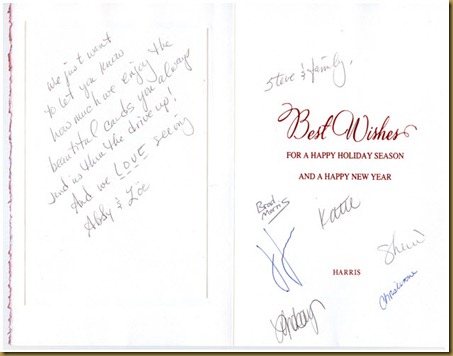 We just want
to let you know
how much we enjoy the
beautiful cards you always
send us thru the drive up!
And we LOVE seeing
Abby & Zöe
Steve & family,
Best Wishes
FOR A HAPPY HOLIDAY SEASON
AND A HAPPY NEW YEAR
Brad
Morris
Katie
HARRIS